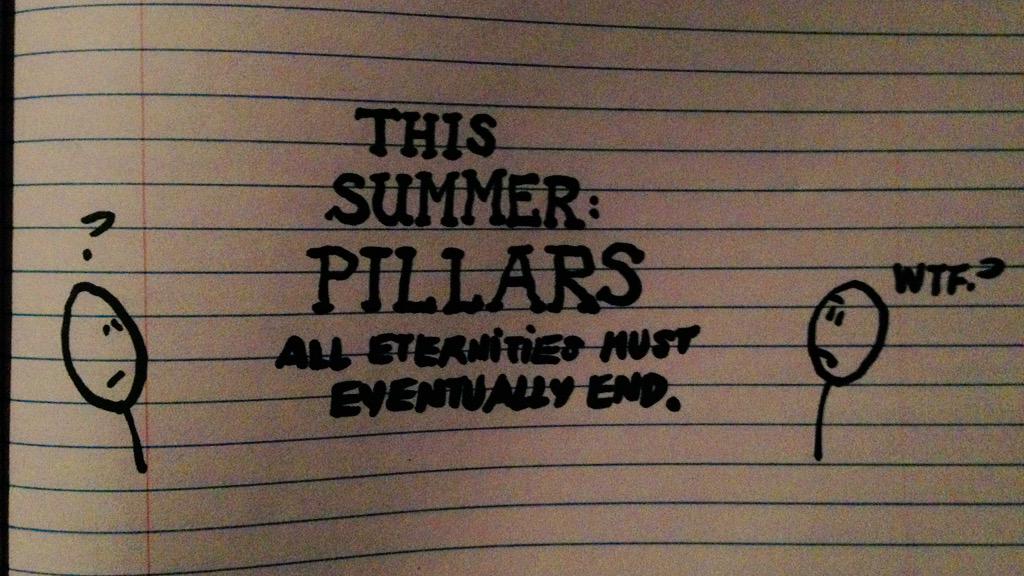 THIS
SUMMER:
PILLARS
ALL ETERNITIES MUST
EVENTUALLY END.
?
WTF?